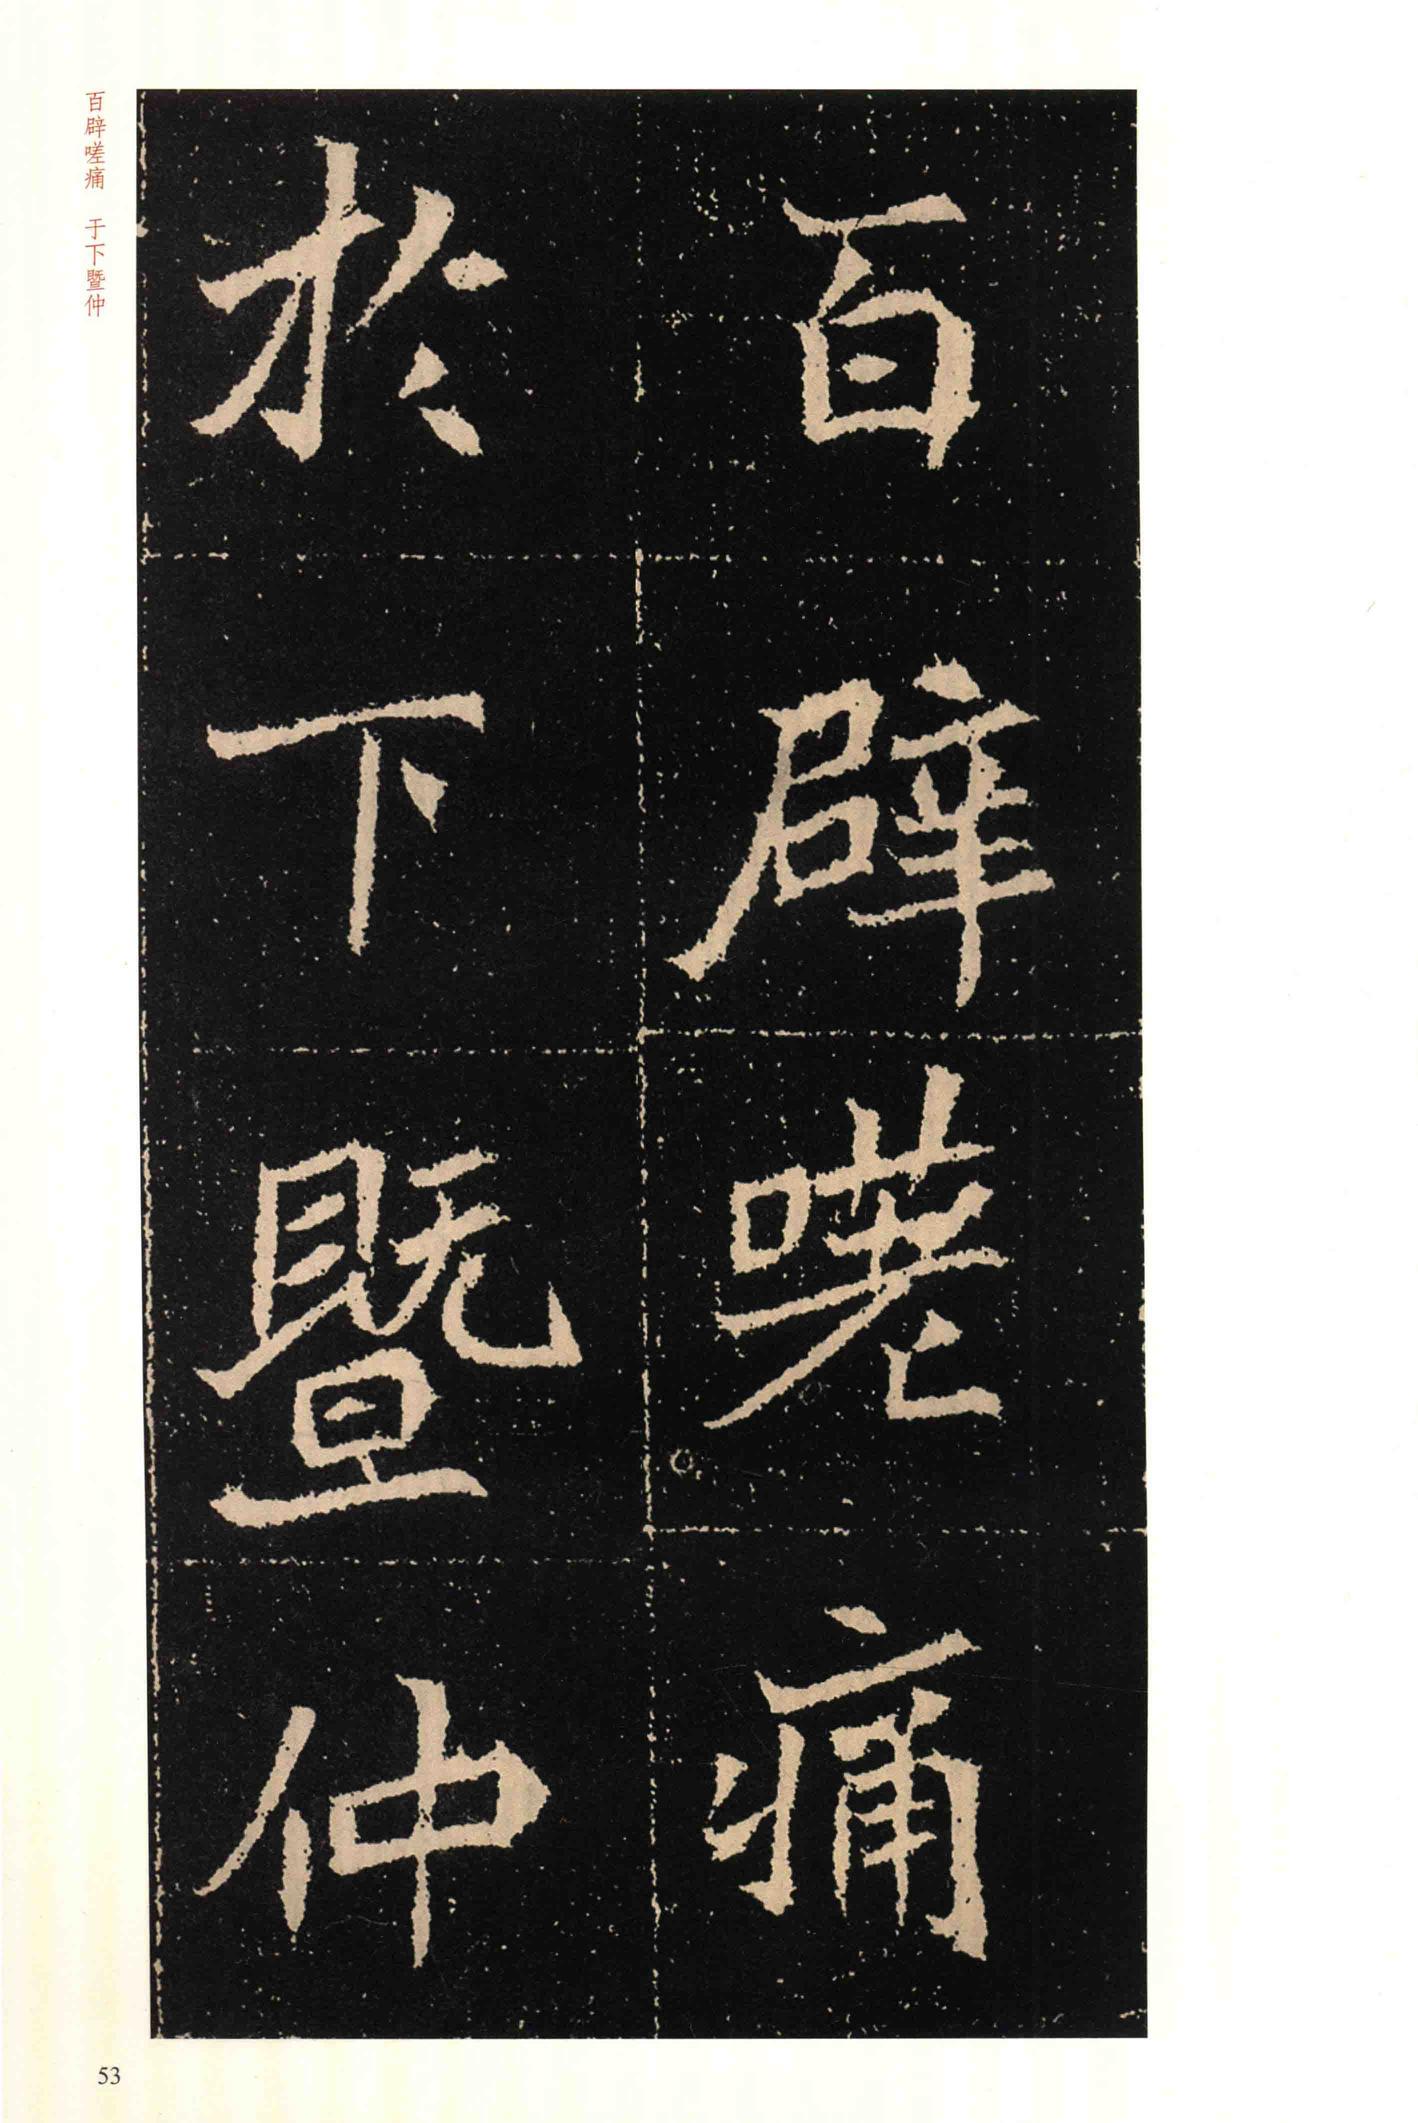 百辟嗟痛
於下暨仲
百辟嗟痛　于下暨仲
53